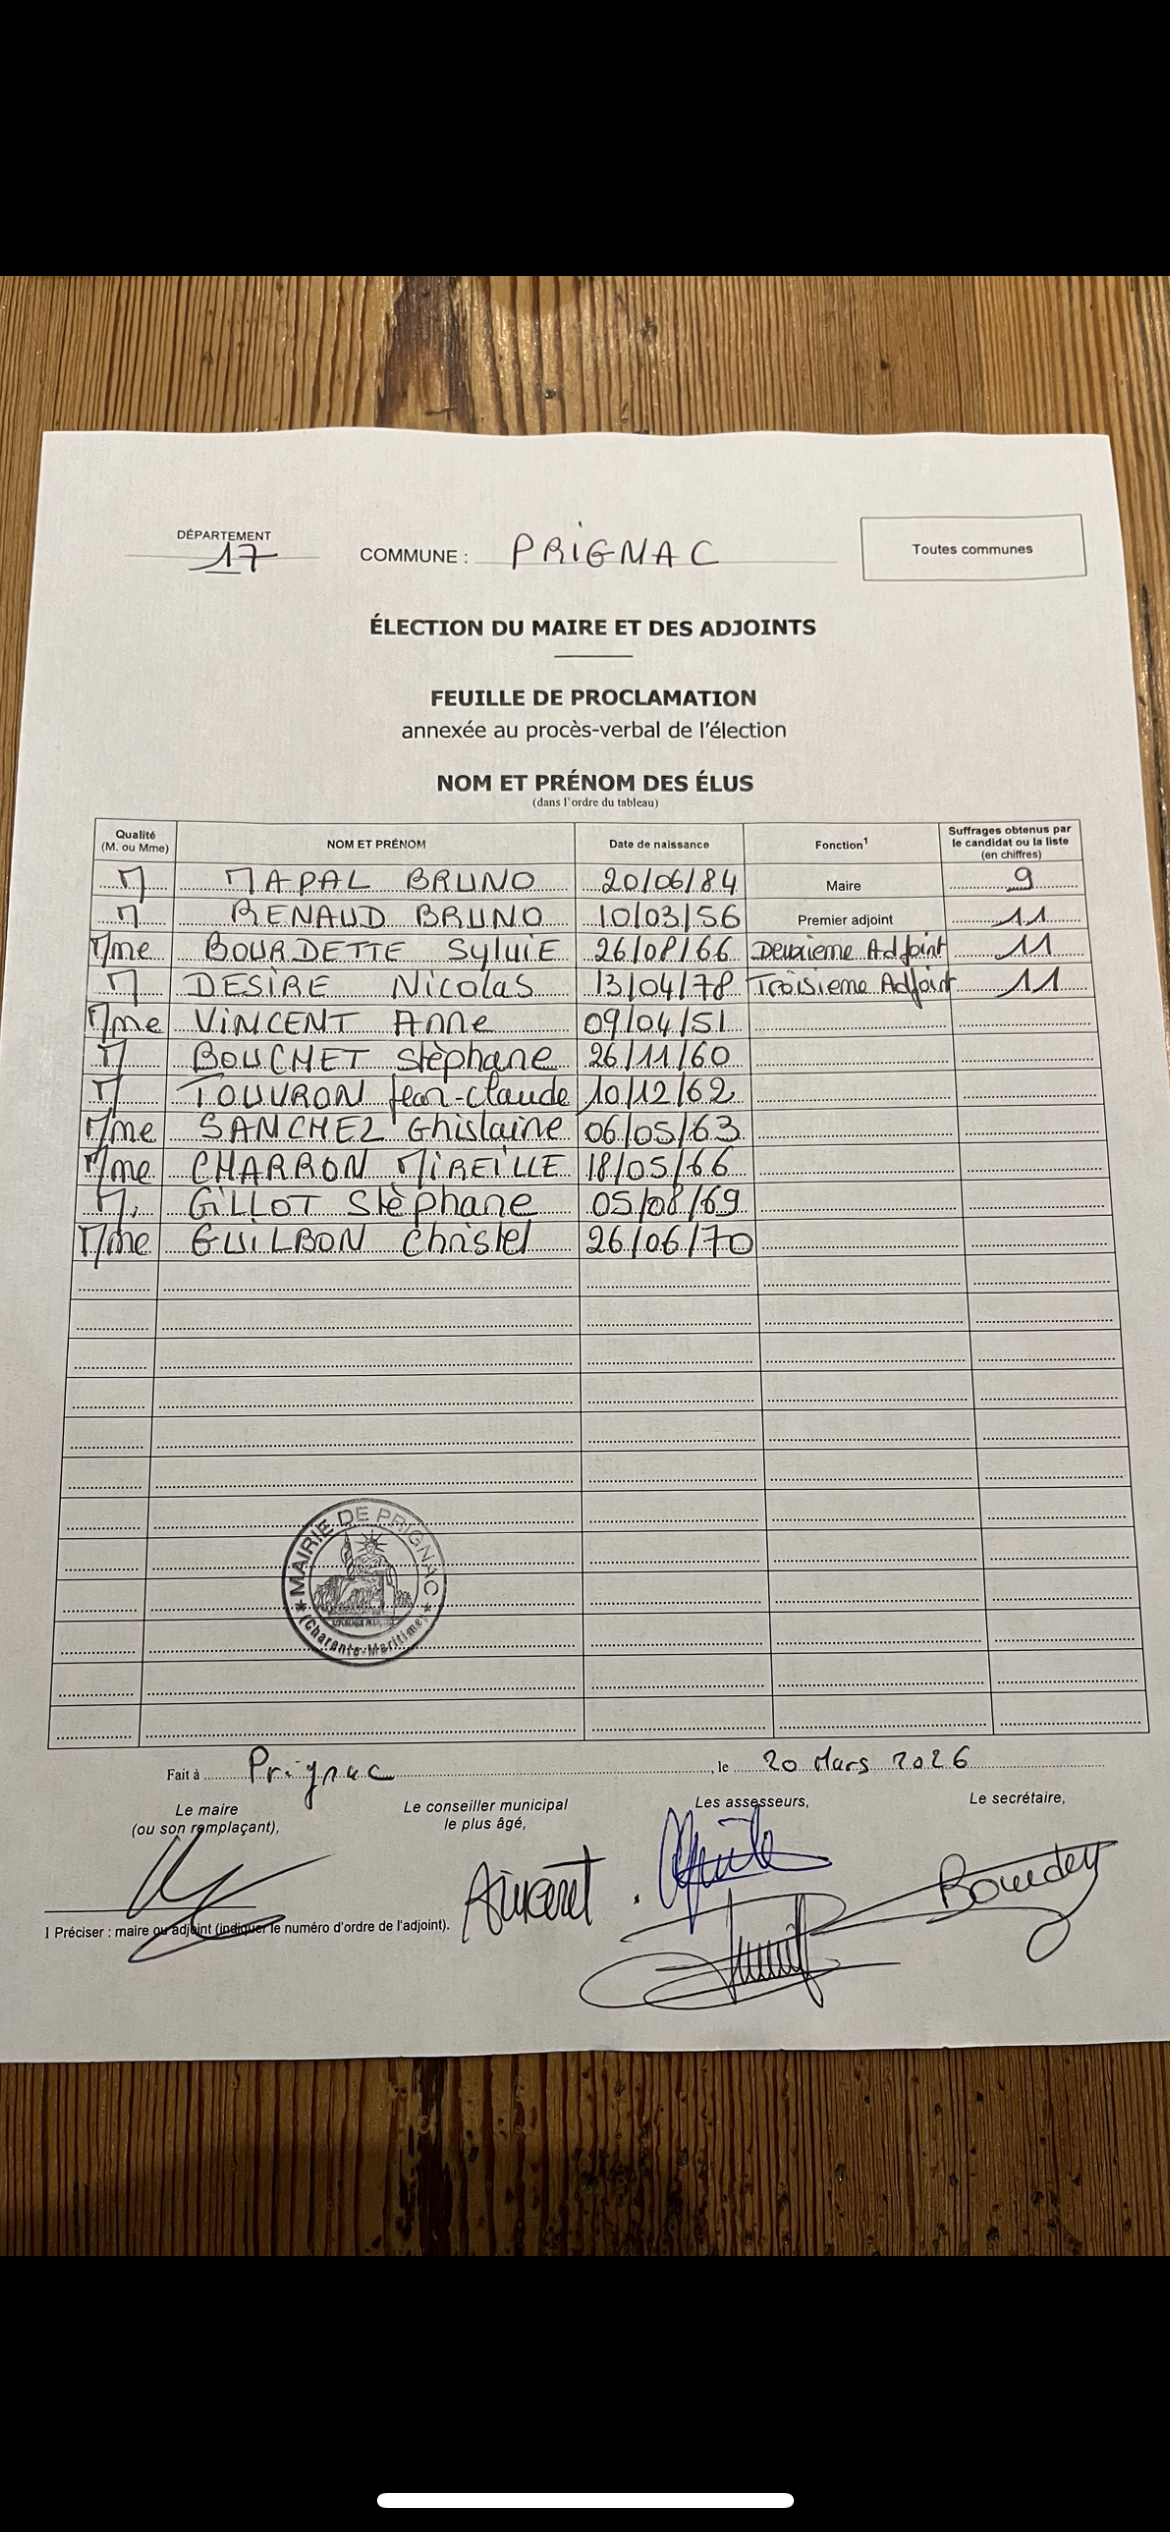 DÉPARTEMENT
17
COMMUNE : PRIGNAC
Toutes communes
ÉLECTION DU MAIRE ET DES ADJOINTS
FEUILLE DE PROCLAMATION
annexée au procès-verbal de l'élection
NOM ET PRÉNOM DES ÉLUS
(dans l'ordre du tableau)
Qualité (M. ou Mme) NOM ET PRÉNOM Date de naissance Fonction1 Suffrages obtenus par le candidat ou la liste (en chiffres)
M MAPAL BRUNO 20/06/84 Maire 9
M RENAUD BRUNO 10/03/56 Premier adjoint 11
Mme BOURDETTE Sylvie 26/08/66 Deuxième Adjoint 11
M DESIRE Nicolas 13/04/78 Troisième Adjoint 11
Mme VINCENT Anne 09/04/51
M BOUCHET Stèphane 26/11/60
M TOUVRON Jean-Claude 10/12/62
Mme SANCHEZ Ghislaine 06/05/63
Mme CHARRON MIREILLE 18/05/66
M. GILLOT Stèphane 05/08/69
Mme GUILBON Christel 26/06/70
MAIRIE DE PRIGNAC
(Charente-Maritime)
Fait à Prignac, le 20 Mars 2026
Le maire (ou son remplaçant),
Le conseiller municipal le plus âgé,
Les assesseurs,
Le secrétaire,
1 Préciser : maire ou adjoint (indiquer le numéro d'ordre de l'adjoint).